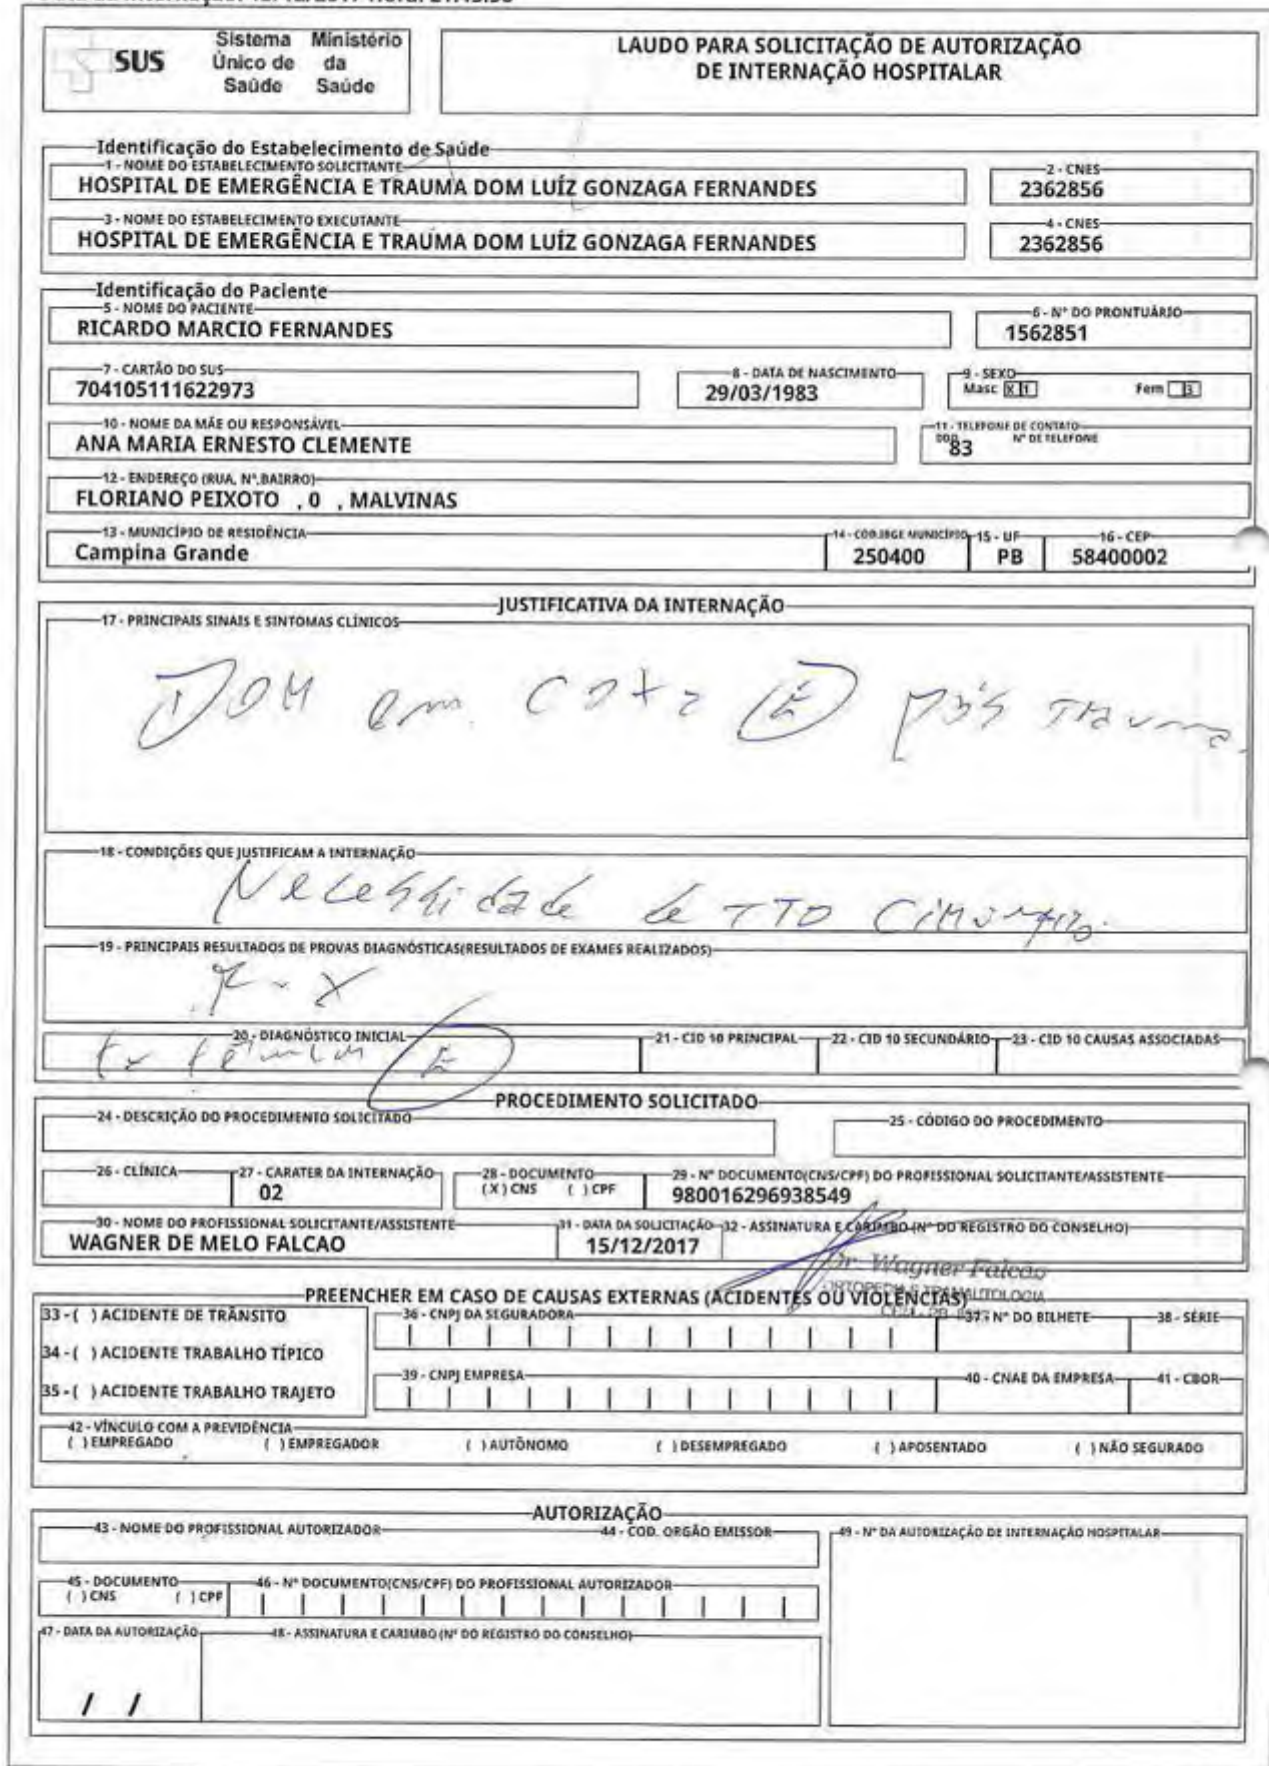 SUS
Sistema Único de Saúde
Ministério da Saúde
LAUDO PARA SOLICITAÇÃO DE AUTORIZAÇÃO
DE INTERNAÇÃO HOSPITALAR
Identificação do Estabelecimento de Saúde
1 - NOME DO ESTABELECIMENTO SOLICITANTE
HOSPITAL DE EMERGÊNCIA E TRAUMA DOM LUÍZ GONZAGA FERNANDES
2 - CNES
2362856
3 - NOME DO ESTABELECIMENTO EXECUTANTE
HOSPITAL DE EMERGÊNCIA E TRAUMA DOM LUÍZ GONZAGA FERNANDES
4 - CNES
2362856
Identificação do Paciente
5 - NOME DO PACIENTE
RICARDO MARCIO FERNANDES
6 - Nº DO PRONTUÁRIO
1562851
7 - CARTÃO DO SUS
704105111622973
8 - DATA DE NASCIMENTO
29/03/1983
9 - SEXO
Masc X 1 Fem 3
10 - NOME DA MÃE OU RESPONSÁVEL
ANA MARIA ERNESTO CLEMENTE
11 - TELEFONE DE CONTATO
DDD Nº DE TELEFONE
83
12 - ENDEREÇO (RUA, Nº,BAIRRO)
FLORIANO PEIXOTO , 0 , MALVINAS
13 - MUNICÍPIO DE RESIDÊNCIA
Campina Grande
14 - COD.IBGE MUNICÍPIO
250400
15 - UF
PB
16 - CEP
58400002
JUSTIFICATIVA DA INTERNAÇÃO
17 - PRINCIPAIS SINAIS E SINTOMAS CLÍNICOS
Dor em coxa E pós trauma.
18 - CONDIÇÕES QUE JUSTIFICAM A INTERNAÇÃO
Necessidade de TTO Cirúrgico.
19 - PRINCIPAIS RESULTADOS DE PROVAS DIAGNÓSTICAS(RESULTADOS DE EXAMES REALIZADOS)
R-X
20 - DIAGNÓSTICO INICIAL
Fx fêmur E
21 - CID 10 PRINCIPAL
22 - CID 10 SECUNDÁRIO
23 - CID 10 CAUSAS ASSOCIADAS
PROCEDIMENTO SOLICITADO
24 - DESCRIÇÃO DO PROCEDIMENTO SOLICITADO
25 - CÓDIGO DO PROCEDIMENTO
26 - CLÍNICA
27 - CARATER DA INTERNAÇÃO
02
28 - DOCUMENTO
(X) CNS ( ) CPF
29 - Nº DOCUMENTO(CNS/CPF) DO PROFISSIONAL SOLICITANTE/ASSISTENTE
980016296938549
30 - NOME DO PROFISSIONAL SOLICITANTE/ASSISTENTE
WAGNER DE MELO FALCAO
31 - DATA DA SOLICITAÇÃO
15/12/2017
32 - ASSINATURA E CARIMBO (Nº DO REGISTRO DO CONSELHO)
Dr. Wagner Falcão
ORTOPEDIA E TRAUMATOLOGIA
PREENCHER EM CASO DE CAUSAS EXTERNAS (ACIDENTES OU VIOLÊNCIAS)
33 - ( ) ACIDENTE DE TRÂNSITO
34 - ( ) ACIDENTE TRABALHO TÍPICO
35 - ( ) ACIDENTE TRABALHO TRAJETO
36 - CNPJ DA SEGURADORA
37 - Nº DO BILHETE
38 - SÉRIE
39 - CNPJ EMPRESA
40 - CNAE DA EMPRESA
41 - CBOR
42 - VÍNCULO COM A PREVIDÊNCIA
( ) EMPREGADO ( ) EMPREGADOR ( ) AUTÔNOMO ( ) DESEMPREGADO ( ) APOSENTADO ( ) NÃO SEGURADO
AUTORIZAÇÃO
43 - NOME DO PROFISSIONAL AUTORIZADOR
44 - COD. ORGÃO EMISSOR
49 - Nº DA AUTORIZAÇÃO DE INTERNAÇÃO HOSPITALAR
45 - DOCUMENTO
( ) CNS ( ) CPF
46 - Nº DOCUMENTO(CNS/CPF) DO PROFISSIONAL AUTORIZADOR
47 - DATA DA AUTORIZAÇÃO
/ /
48 - ASSINATURA E CARIMBO (Nº DO REGISTRO DO CONSELHO)